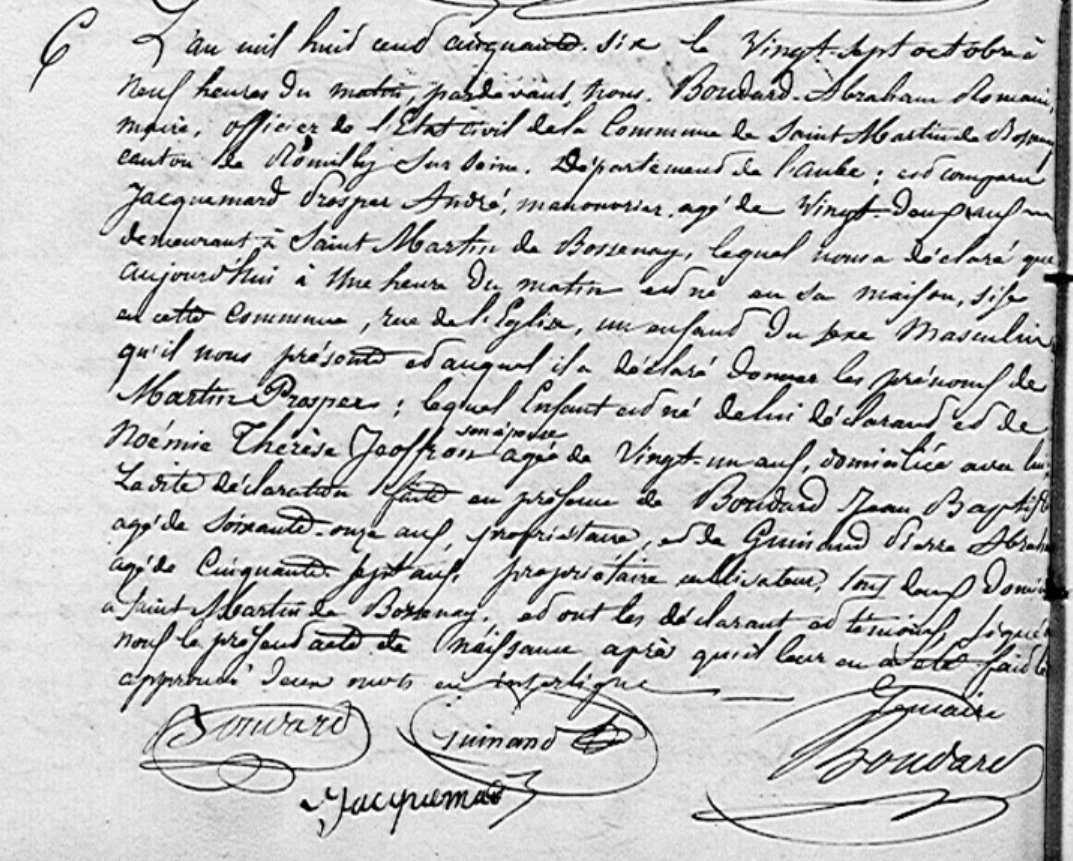 6
L'an mil huit cent cinquante-six le Vingt-sept octobre à
Neuf heures du matin, pardevant nous Boudard Abraham Romain,
maire, officier de l'Etat civil de la Commune de Saint Martin de Bossenay
canton de Romilly sur Seine, Département de l'aube ; est comparu
Jacquemard Prosper André, manouvrier, agé de Vingt-
demeurant à Saint Martin de Bossenay, lequel nous a déclaré que
aujourd'hui à Une heure du matin est né en sa maison, sise
en cette Commune, rue de l'Eglise, un enfant du sexe Masculin
qu'il nous présente et auquel il a déclaré donner les prénoms de
Martin Prosper ; lequel Enfant est né de lui déclarant et de
son épouse
Noémie Thérèse Jeoffron agée de Vingt-un ans, domiciliée avec lui,
Ladite déclaration faite en présence de Boudard Jean Baptiste
agé de soixante-onze ans, propriétaire, et de Guinand Pierre Abraham
agé de Cinquante-sept ans, propriétaire cultivateur, tous deux Domici
à Saint Martin de Bossenay, et ont les déclarant et témoins, signé
nous le présent acte de Naissance après qu'il leur en a été fait le
approuvé deux mots en interligne
Le maire
Boudard Guinand Boudard
Jacquemard